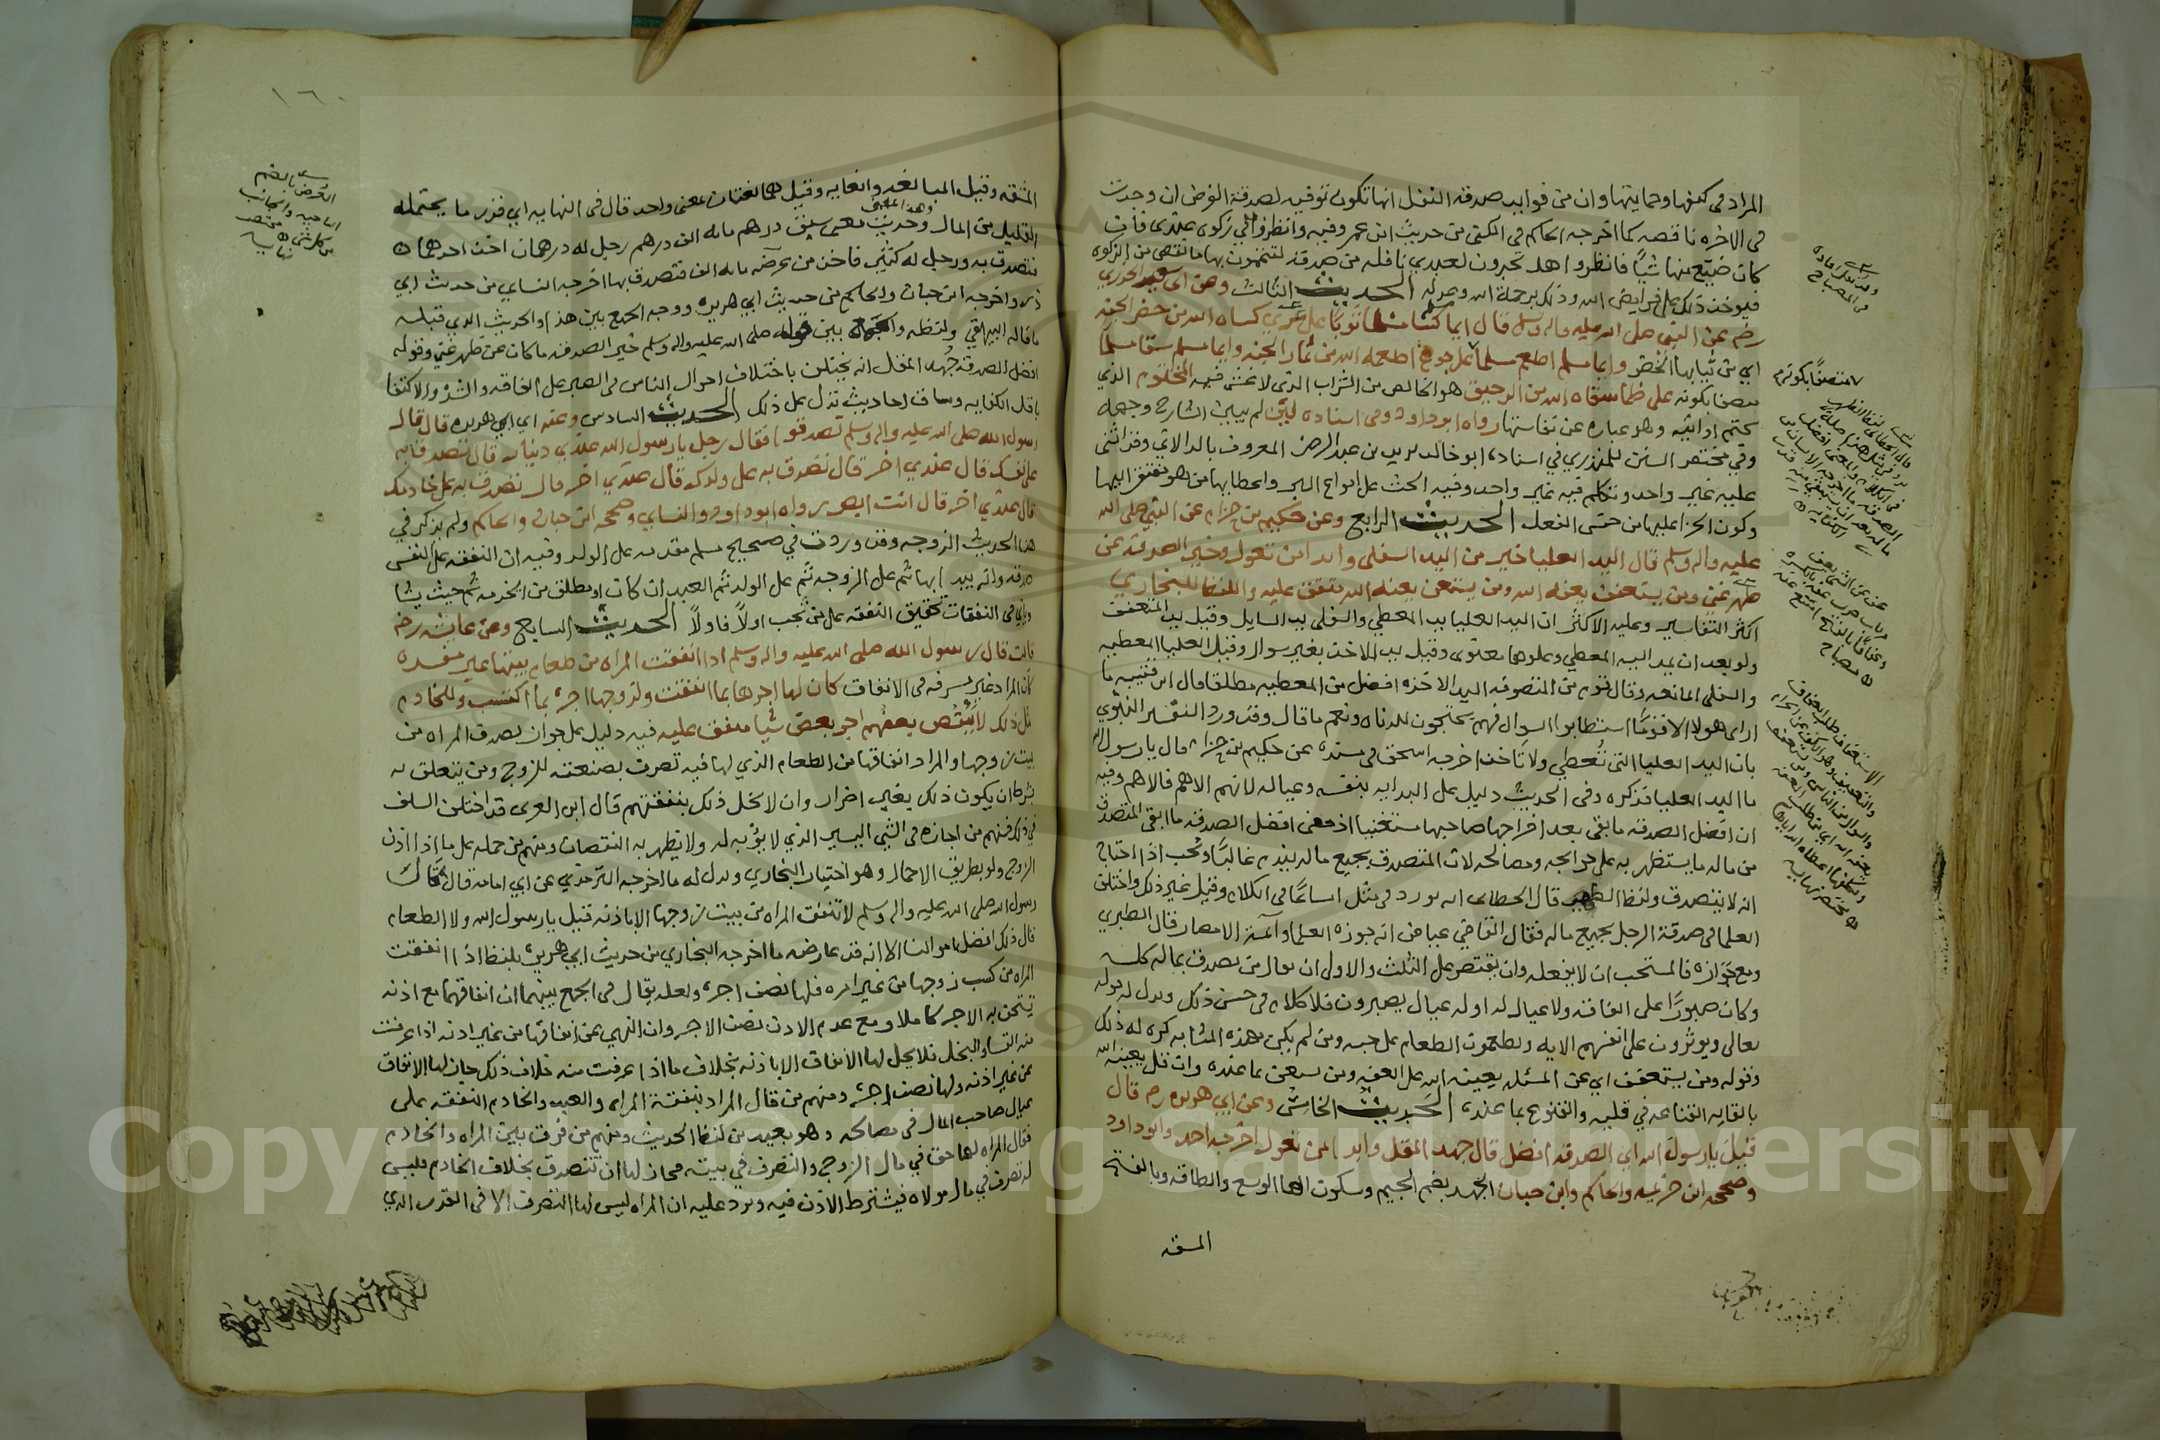 المراد في كنفها وحمايتها وان من فوايد صدقة النفل انها تكون توفيه لصدقة الفرض ان وجدت
في الاخره ناقصه كما اخرجه الحاكم في الكنى من حديث ابن عمر وفيه وانظروا في زكوة عبدي فان
كان ضيع منها شيأ فانظروا هل تجدون لعبدي نافله من صدقه لتتموا بها ما نقص من الزكوة
فيوخذ ذلك على فرايض الله وذلك برحمة الله وعدله الحديث الثالث وعن ابي سعيد الخدري
رضه عن النبي صلى الله عليه واله وسلم قال ايما مسلم كسا مسلما ثوبا على عري كساه الله من خضر الجنه
اي من ثيابها الخضر وايما مسلم اطعم مسلما على جوع اطعمه الله من ثمار الجنه وايما مسلم سقا مسلما
متصفا بكونه على ظما سقاه الله من الرحيق هو الخالص من الشراب الذي لا غش فيه المختوم الذي
تختم اوانيه وهو عباره عن نفاستها رواه ابو داود وفي اسناده لين لم يبين الشارح وجهه
وفي مختصر السنن للمنذري في اسناده ابو خالد يزيد بن عبد الرحمن المعروف بالدالاني وقد اثنى
عليه غير واحد وتكلم فيه غير واحد وفيه الحث على انواع البر واعطايها من هو مفتقر اليها
وكون الجزا عليها من جنس الفعل الحديث الرابع وعن حكيم بن حزام عن النبي صلى الله
عليه واله وسلم قال اليد العليا خير من اليد السفلى وابدا بمن تعول وخير الصدقه عن
ظهر غنى ومن يستعفف يعفه الله ومن يستغن يغنه الله متفق عليه واللفظ للبخاري
اكثر التفاسير وعليه الاكثر ان اليد العليا يد المعطي والسفلى يد السايل وقيل يد المتعفف
ولو بعد ان يمد اليه المعطي وعلوها معنوي وقيل يد الاخذ بغير سوال وقيل العليا المعطيه
والسفلى المانعه وقال قوم من المتصوفه اليد الاخذه افضل من المعطيه مطلقا قال ابن قتيبه ما
ارى هولا الا قوما استطابوا السوال فهم يحتجون للدناه ونعم ما قال وقد ورد التفسير النبوي
بان اليد العليا التي تعطي ولا تاخذ اخرجه اسحق في مسنده عن حكيم بن حزام قال يا رسول الله
ما اليد العليا فذكره وفي الحديث دليل على البداية بنفسه وعياله لانهم الاهم فالاهم وفيه
ان افضل الصدقه ما بقي بعد اخراجها صاحبها مستغنيا اذ معنى افضل الصدقه ما ابقى المتصدق
من ماله ما يستظهر به على حوايجه ومصالحه لان المتصدق بجميع ماله يندم غالبا ويحب اذا احتاج
انه لا يتصدق ولفظ الظهر قال الخطابي انه يورد في مثل اتساعا في الكلام وقيل غير ذلك واختلف
العلما في صدقة الرجل بجميع ماله فقال القاضي عياض انه جوزه العلما وائمة الامصار قال الطبري
ومع جوازه فالمستحب ان لا يفعله وان يقتصر على الثلث والاولى ان يقال من تصدق بماله كله
وكان صبورا على الفاقه ولا عيال له او له عيال يصبرون فلا كلام في حسن ذلك ويدل له قوله
تعالى ويوثرون على انفسهم الايه ويطعمون الطعام على حبه ومن لم يكن بهذه المثابه كره له ذلك
وقوله ومن يستعفف اي عن المسئله يعينه الله على العفه ومن يستغن بما عنده وان قل يغنه الله
بالقايه القناعه في قلبه والقنوع بما عنده الحديث الخامس وعن ابي هريره رضه قال
قيل يا رسول الله اي الصدقه افضل قال جهد المقل وابدا بمن تعول اخرجه احمد وابو داود
وصححه ابن خزيمه والحاكم وابن حبان الجهد بضم الجيم وسكون الها الوسع والطاقه وبالفتح
المشقه
متصفا بكونه
١٦٠
المشقه وقيل المبالغه والغايه وقيل هما لغتان بمعنى واحد قال في النهايه اي قدر ما يحتمله
القليل من المال وحديث سبق درهم مايه الف درهم رجل له درهمان اخذ احدهما
فتصدق به ورجل له كثير فاخذ من عرضه مايه الف فتصدق بها اخرجه النساي من حديث ابي
ذر واخرجه ابن حبان والحاكم من حديث ابي هريره ووجه الجمع بين هذا والحديث الذي قبله
ما قاله البيهقي ولفظه والجمع بين قوله صلى الله عليه واله وسلم خير الصدقه ما كان عن ظهر غنى وقوله
افضل الصدقه جهد المقل انه يختلف باختلاف احوال الناس في الصبر على الفاقه والشده والاكتفا
باقل الكفايه وساق احاديث تدل على ذلك الحديث السادس وعنه اي ابي هريره قال قال
رسول الله صلى الله عليه واله وسلم تصدقوا فقال رجل يا رسول الله عندي دينار قال تصدق به
على نفسك قال عندي اخر قال تصدق به على ولدك قال عندي اخر قال تصدق به على خادمك
قال عندي اخر قال انت ابصر رواه ابو داود والنساي وصححه ابن حبان والحاكم ولم يذكر في
هذا الحديث الزوجه وقد وردت في صحيح مسلم مقدمه على الولد وفيه ان النفقه على النفس
صدقه وانه يبدا بها ثم على الزوجه ثم على الولد ثم العبد ان كان او مطلق من يخدمه ثم حيث يشا
وياتي في النفقات تحقيق النفقه على من تجب اولا فاولا الحديث السابع وعن عايشه رضه
قالت قال رسول الله صلى الله عليه واله وسلم اذا انفقت المراه من طعام بيتها غير مفسده
كان المراد غير مسرفه في الانفاق كان لها اجرها بما انفقت ولزوجها اجره بما اكتسب وللخادم
مثل ذلك لا ينقص بعضهم اجر بعض شيا متفق عليه فيه دليل على جواز تصدق المراه من
بيت زوجها والمراد انفاقها من الطعام الذي لها فيه تصرف بصنعته للزوج ومن يتعلق به
بشرط ان يكون ذلك بغير اضرار وان لا يخل ذلك بنفقتهم قال ابن العربي قد اختلف السلف
في ذلك فمنهم من اجازه في الشي اليسير الذي لا يوبه له ولا يظهر به النقصان ومنهم من حمله على ما اذا اذن
الزوج ولو بطريق الاجمال وهو اختيار البخاري ويدل له ما اخرجه الترمذي عن ابي امامه قال قال
رسول الله صلى الله عليه واله وسلم لا تنفق المراه من بيت زوجها الا باذنه قيل يا رسول الله ولا الطعام
قال ذلك افضل اموالنا الا انه قد عارضه ما اخرجه البخاري من حديث ابي هريره بلفظ اذا انفقت
المراه من كسب زوجها من غير امره فلها نصف اجره ولعله يقال في الجمع بينهما ان انفاقها مع اذنه
تستحق به الاجر كاملا ومع عدم الاذن نصف الاجر وان النهي عن انفاقها من غير اذنه اذا عرفت
منه الفقر او البخل فلا يحل لها الانفاق الا باذنه بخلاف ما اذا عرفت منه خلاف ذلك جاز لها الانفاق
عن غير اذنه ولها نصف اجره ومنهم من قال المراد بنفقة المراه والعبد والخادم النفقه على
عيال صاحب المال في مصالحه وهو بعيد من لفظ الحديث ومنهم من فرق بين المراه والخادم
فقال المراه لها حق في مال الزوج والتصرف في بيته فجاز لها ان تتصدق بخلاف الخادم فليس
له تصرف في مال مولاه فيشترط الاذن فيه ويرد عليه ان المراه ليس لها التصرف الا في القدر الذي
العرض بالضم
الناحيه والجانب
من كل شي
Copyright © King Saud University